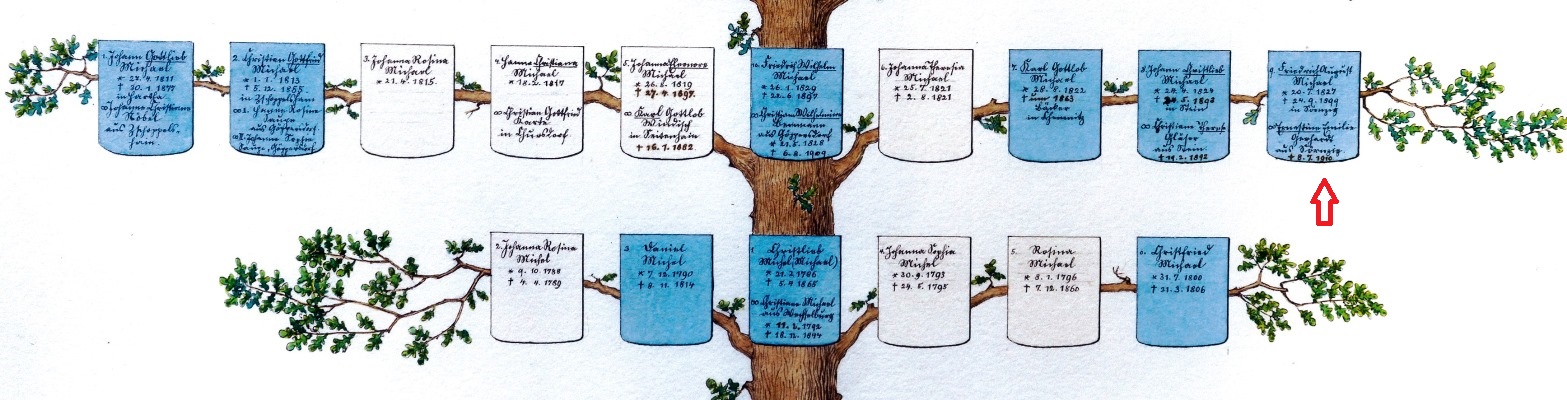 1. Johann Gottlieb
Michael
* 22.4.1811
† 30.1.1877
in Hartha
∞ Johanne Christiane
Köbel
aus Zschoppels-
hain.
2. Christian Gottfried
Michael
* 1.1.1813
† 5.12.1855
in Zschoppelshain
∞ 1. Hanne Rosine
Lange
aus Göppersdorf
Lange, Göppersdorf
3. Johanna Rosina
Michael
* 21.4.1815.
4. Hanna Christiana
Michael
* 18.2.1817
∞ Christian Gottfried
in Thiersdorf
5. Johanna Eleonore
Michael
* 26.8.1819
† 27.4.1897.
∞ Karl Gottlob
Windisch
in Seitenhain
† 16.1.1882.
10. Friedrich Wilhelm
Michael
* 26.1.1829
† 22.6.1897
∞ Christiane Wilhelmine
aus Göppersdorf
* 21.5.1828
† 6.8.1909
6. Johanna Theresia
Michael
* 25.7.1821
† 2.8.1821
7. Karl Gottlob
Michael
* 28.8.1822
† um 1863
Bäcker
in Chemnitz
8. Johann Traugott
Michael
* 24.4.1824
in Stein
∞ Christiane
Gläser
aus Stein.
† 19.2.1892
9. Friedrich August
Michael
* 20.7.1827
† 24.9.1899
in Sörnzig
∞ Ernestine Emilie
Gerhardt
aus Sörnzig
† 8.7.1910
2. Johanna Rosina
Michel
* 9.10.1788
† 4.4.1789
3. Daniel
Michel
* 7.12.1790
† 8.11.1814
1. Christlieb
Michel (Michael)
* 21.2.1786
† 5.4.1865
∞ Christiane Michael
aus Wechselburg
* 11.2.1792
† 18.12.1874
4. Johanna Sophia
Michel
* 30.9.1793
† 24.5.1795
5. Rosina
Michael
* 5.1.1796
† 7.12.1860
6. Christfried
Michael
* 31.7.1800
† 21.3.1806